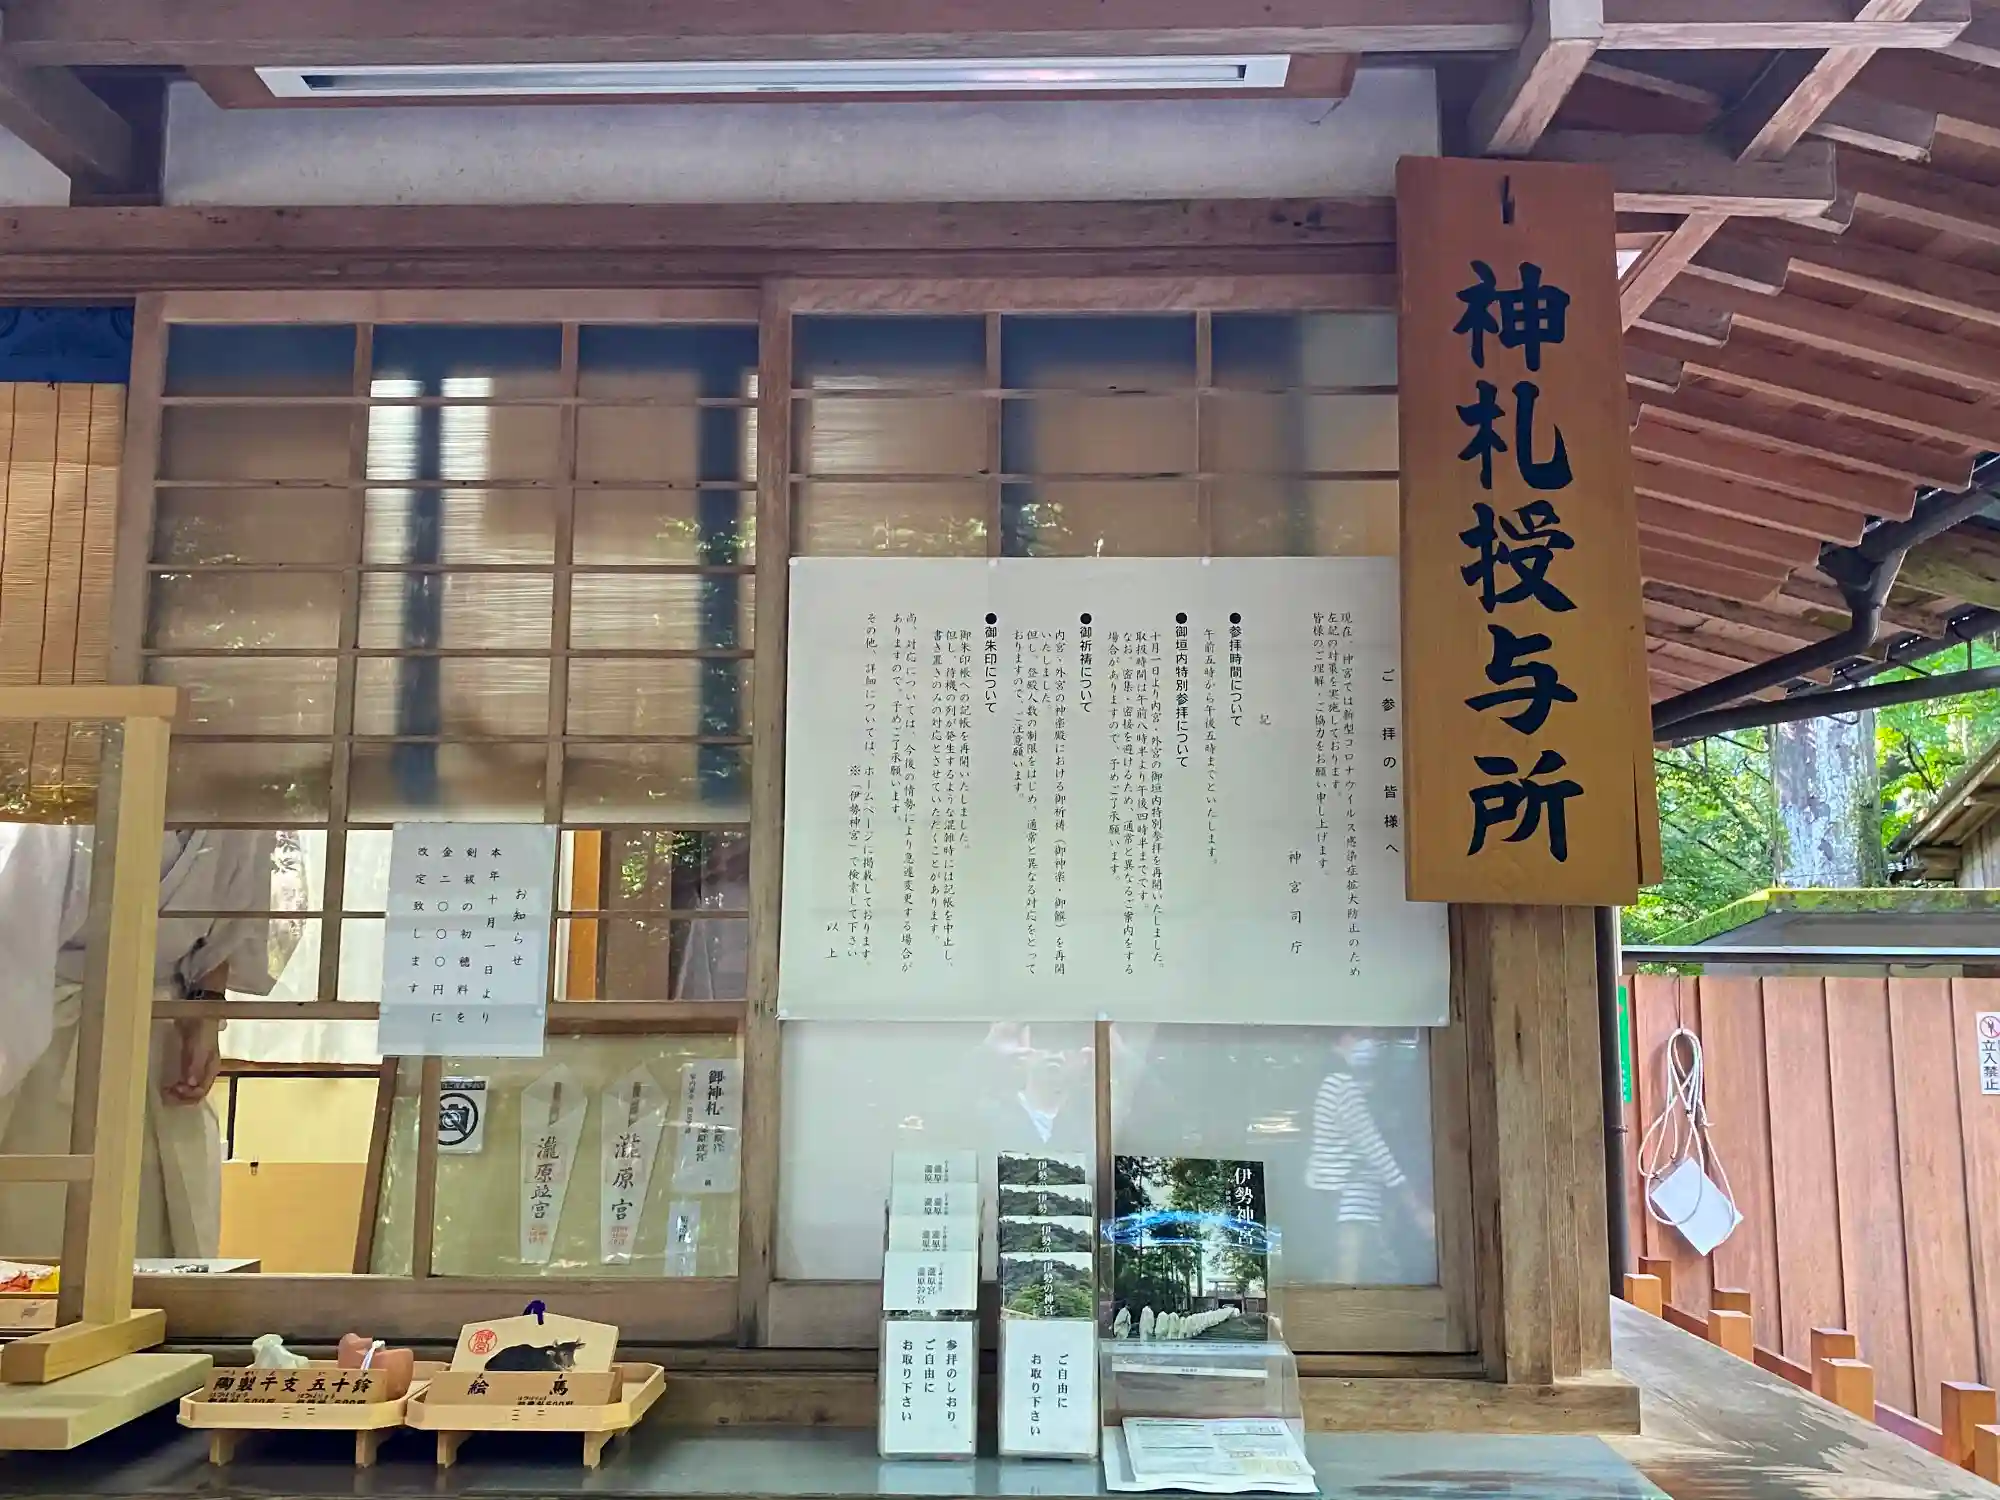 神札授与所
ご参拝の皆様へ
現在、神宮では新型コロナウイルス感染症拡大防止のため
左記の対策を実施しております。
皆様のご理解・ご協力をお願い申し上げます。
神宮司庁
記
●参拝時間について
午前五時から午後五時までといたします。
●御垣内特別参拝について
十月一日より内宮・外宮の御垣内特別参拝を再開いたしました。
取扱時間は午前八時半より午後四時半までです。
なお、密集・密接を避けるため、通常と異なるご案内をする
場合がありますので、予めご了承願います。
●御祈祷について
内宮・外宮の神楽殿における御祈祷（御神楽・御饌）を再開
いたしました。
但し、登殿人数の制限をはじめ、通常と異なる対応をとって
おりますので、ご注意願います。
●御朱印について
御朱印帳への記帳を再開いたしました。
但し、待機の列が発生するような混雑時には記帳を中止し、
書き置きのみの対応とさせていただくことがあります。
尚、対応については、今後の情勢により急遽変更する場合が
ありますので、予めご了承願います。
その他、詳細については、ホームページに掲載しております。
※「伊勢神宮」で検索して下さい
以上
お知らせ
本年十月一日より
剣祓の初穂料を
金二〇〇〇円に
改定致します
御神札
瀧原宮
瀧原竝宮
伊勢神宮
伊勢の神宮
瀧原宮
瀧原竝宮
参拝のしおり。
ご自由に
お取り下さい
ご自由に
お取り下さい
絵馬
陶製干支五十鈴
神宮
立入禁止